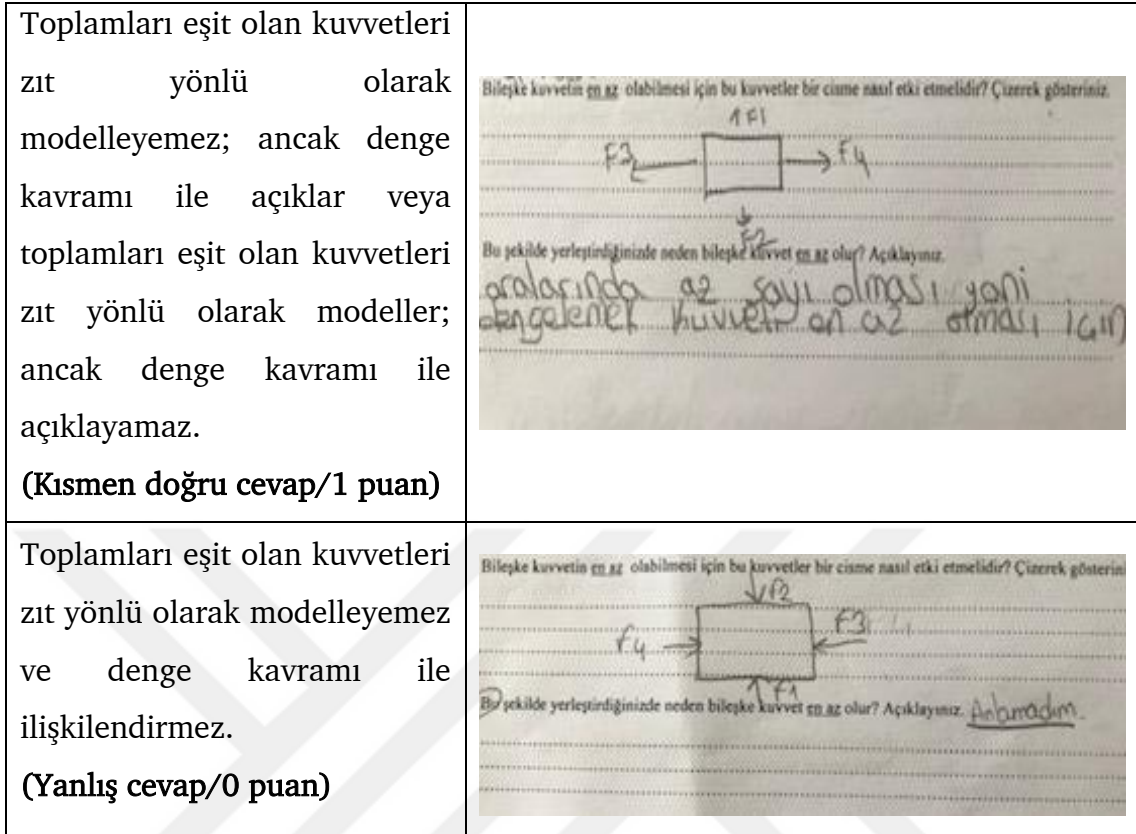 Toplamları eşit olan kuvvetleri
zıt yönlü olarak
modelleyemez; ancak denge
kavramı ile açıklar veya
toplamları eşit olan kuvvetleri
zıt yönlü olarak modeller;
ancak denge kavramı ile
açıklayamaz.
(Kısmen doğru cevap/1 puan)
Bileşke kuvvetin en az olabilmesi için bu kuvvetler bir cisme nasıl etki etmelidir? Çizerek gösteriniz.
F1
F3
F4
F2
Bu şekilde yerleştirdiğinizde neden bileşke kuvvet en az olur? Açıklayınız.
aralarında az sayı olması yani
dengelenek kuvvet en az olması için
Toplamları eşit olan kuvvetleri
zıt yönlü olarak modelleyemez
ve denge kavramı ile
ilişkilendirmez.
(Yanlış cevap/0 puan)
Bileşke kuvvetin en az olabilmesi için bu kuvvetler bir cisme nasıl etki etmelidir? Çizerek gösterini
F2
F3
F4
F1
Bu şekilde yerleştirdiğinizde neden bileşke kuvvet en az olur? Açıklayınız. Anlamadım.